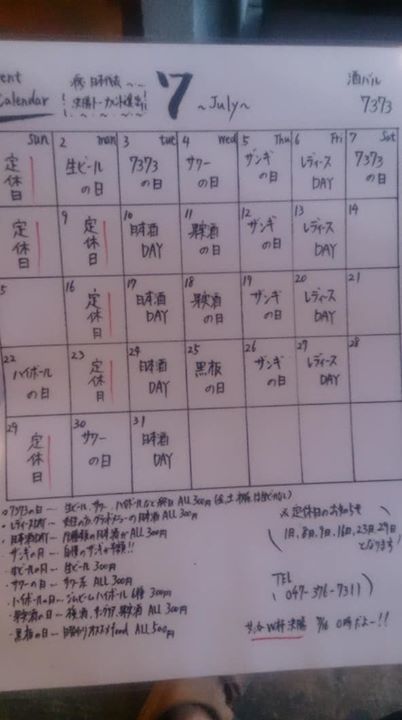 ent
Calendar
祝 日本代表
決勝トーナメント進出!!
7
~July~
酒バル
7373
Sun 2 mon 3 tue 4 Wed 5 Thu 6 Fri 7 Sat
定休日 生ビールの日 7373の日 サワーの日 ザンギの日 レディースDAY 7373の日
9 10 11 12 13 14
定休日 定休日 日本酒DAY 果実酒の日 ザンギの日 レディースDAY
5 16 17 18 19 20 21
定休日 日本酒DAY 果実酒の日 ザンギの日 レディースDAY
22 23 24 25 26 27 28
ハイボールの日 定休日 日本酒DAY 黒板の日 ザンギの日 レディースDAY
29 30 31
定休日 サワーの日 日本酒DAY
7373の日 ー 生ビール、サワー、ハイボールなど ALL 300円
レディースDAY ー の日本酒 ALL 300円
日本酒DAY の日本酒が ALL 300円
ザンギの日 ー 自慢のザンギが半額!!
生ビールの日 ー 生ビール ALL 300円
サワーの日 ー サワー ALL 300円
ハイボールの日 ー ジムビームハイボール 300円
果実酒の日 ー 梅酒、サングリア、果実酒 ALL 300円
黒板の日 ー 日替わりオススメfood ALL 500円
※定休日のお知らせ
1日、8日、9日、16日、23日、29日
となります!
TEL
047-376-7311
サッカーW杯決勝 7/16 0時だよー!!